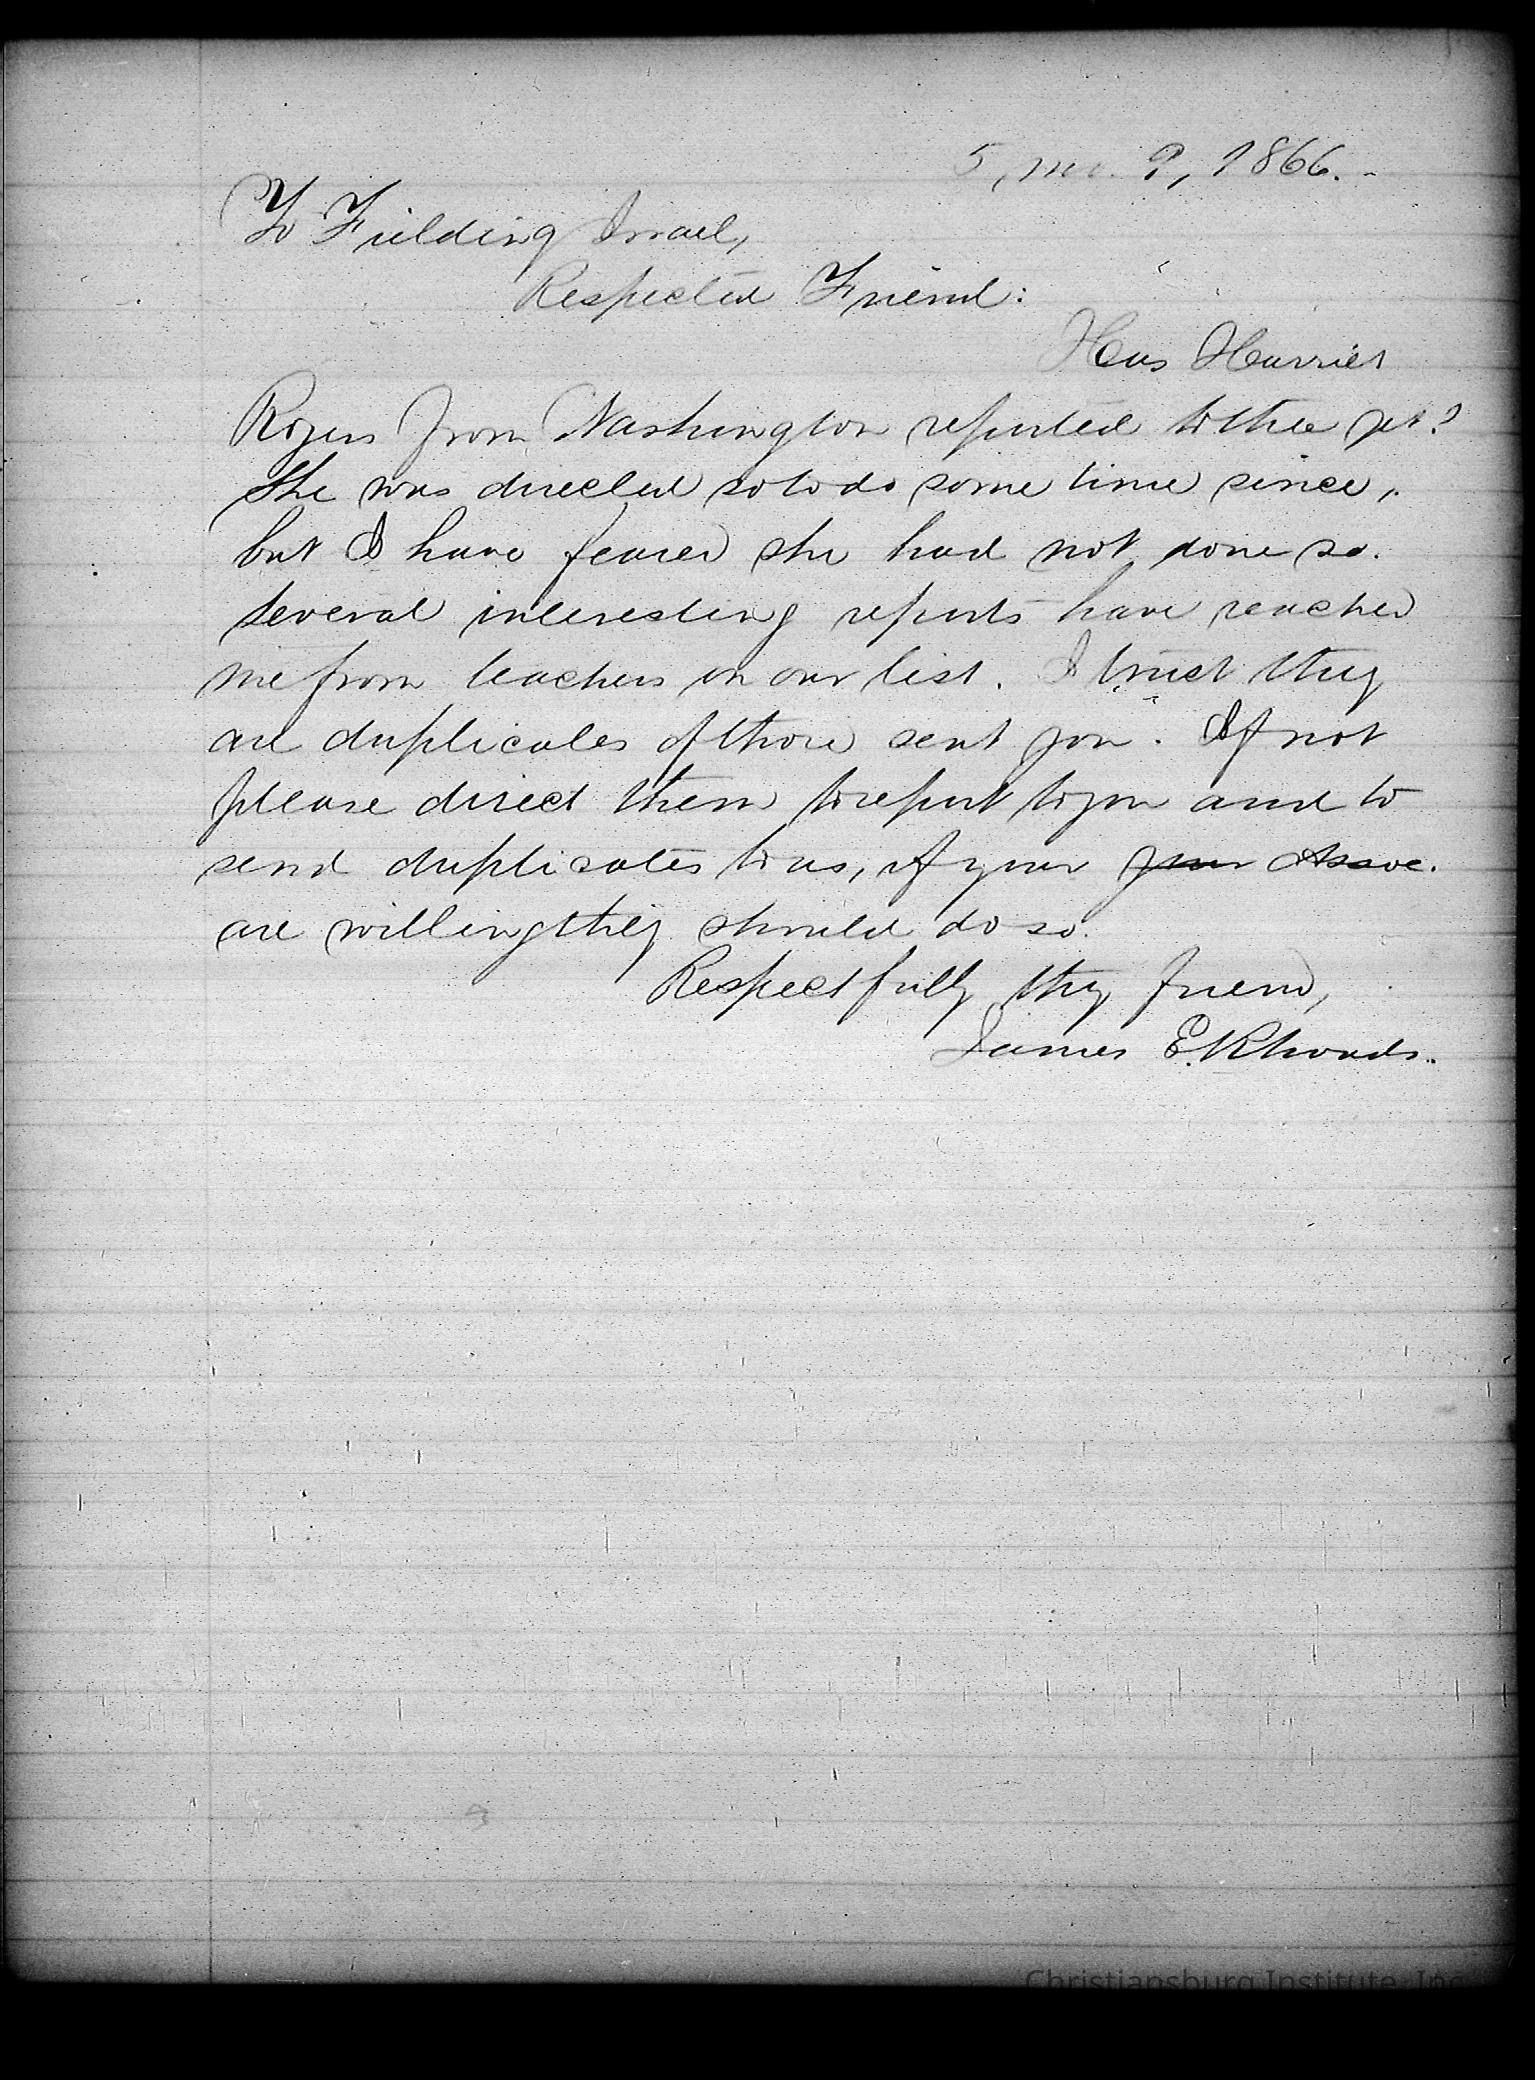 5, mo. 9, 1866.
To Fielding Israel,
Respected Friend:
Has Harriet
Rogers from Washington reported to thee yet?
She was directed so to do some time since,
but I have feared she had not done so.
Several interesting reports have reached
me from teachers on our list. I trust they
are duplicates of those sent you. If not
please direct them to report to you and to
send duplicates to us, if your Assoc.
are willing they should do so.
Respectfully thy friend,
James E. Rhoads.
Christiansburg Institute, Inc